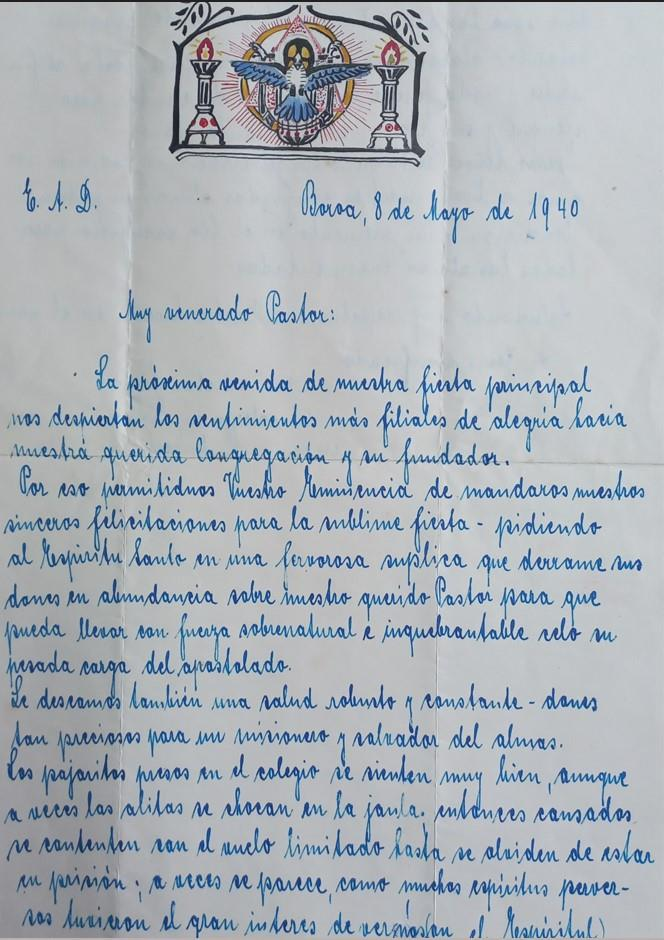 E. A. D.
Boroa, 8 de Mayo de 1940
Muy venerado Pastor:
La próxima venida de nuestra fiesta principal
nos despiertan los sentimientos más filiales de alegría hacia
nuestra querida Congregación y su fundador.
Por eso permitidnos Vuestro Eminencia de mandaros nuestros
sinceros felicitaciones para la sublime fiesta - pidiendo
al Espíritu Santo en una fervorosa suplica que derrame sus
dones en abundancia sobre nuestro querido Pastor para que
pueda llevar con fuerza sobrenatural e inquebrantable celo su
pesada carga del apostolado.
Le deseamos también una salud robusto y constante - dones
tan preciosos para un missionero y salvador del almas.
Los pajaritos presos en el colegio se sienten muy bien, aunque
a veces las alitas se chocan en la jaula. entonces cansados
se contenten con el vuelo limitado hasta se olviden de estar
en prisión; a veces se parece, como muchos espíritus perver-
sos tuvieron el gran interes de vernos (on el Espíritu!)